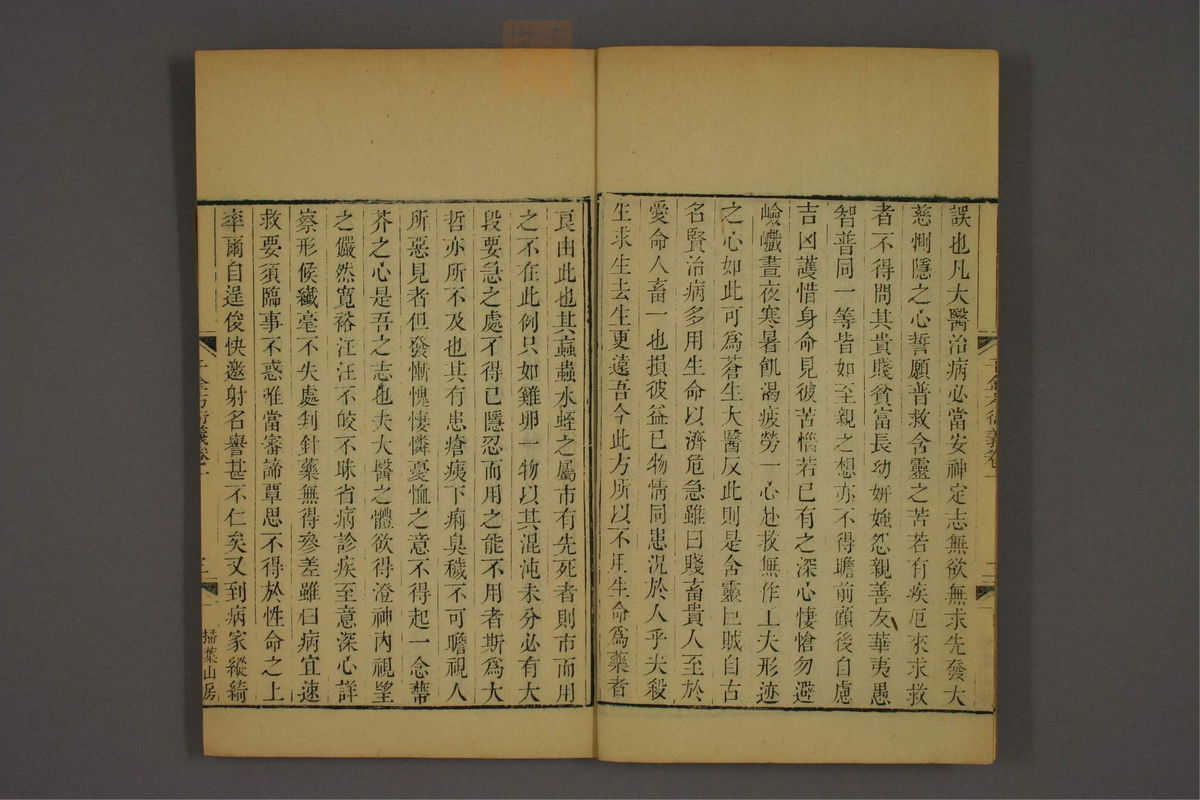 誤也凡大醫治病必當安神定志無欲無求先發大
慈惻隱之心誓願普救含靈之苦若有疾厄來求救
者不得問其貴賤貧富長幼妍媸怨親善友華夷愚
智普同一等皆如至親之想亦不得瞻前顧後自慮
吉凶護惜身命見彼苦惱若已有之深心悽愴勿避
嶮巇晝夜寒暑飢渴疲勞一心赴救無作工夫形迹
之心如此可為蒼生大醫反此則是含靈巨賊自古
名賢治病多用生命以濟危急雖曰賤畜貴人至於
愛命人畜一也損彼益已物情同患況於人乎夫殺
生求生去生更遠吾今此方所以不用生命為藥者
千金方衍義卷一
二
良由此也其蝱蟲水蛭之屬市有先死者則市而用
之不在此例只如雞卵一物以其混沌未分必有大
段要急之處不得已隱忍而用之能不用者斯為大
哲亦所不及也其有患瘡痍下痢臭穢不可瞻視人
所惡見者但發慚愧悽憐憂恤之意不得起一念蔕
芥之心是吾之志也夫大醫之體欲得澄神內視望
之儼然寬裕汪汪不皎不昧省病診疾至意深心詳
察形候纖毫不失處判針藥無得參差雖曰病宜速
救要須臨事不惑惟當審諦覃思不得於性命之上
率爾自逞俊快邀射名譽甚不仁矣又到病家縱綺
千金方衍義卷一
三
掃葉山房